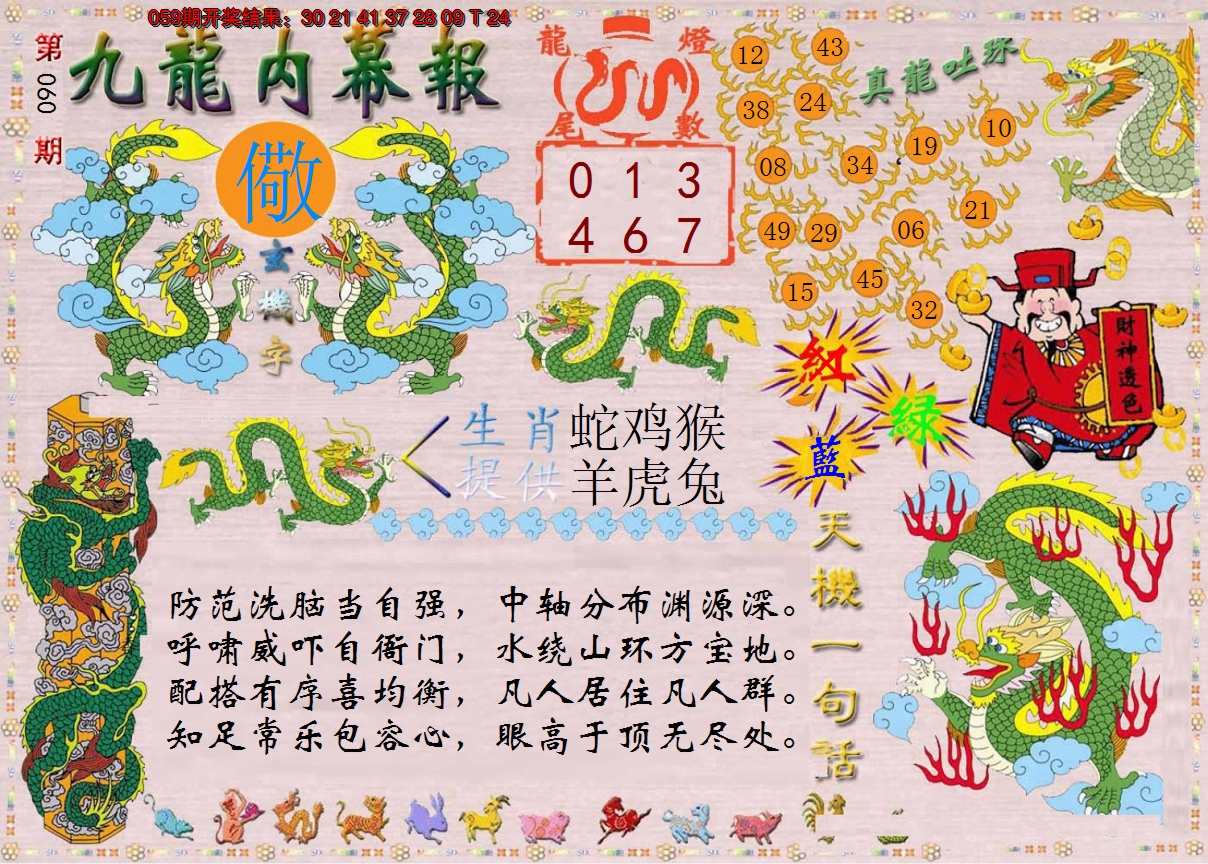 059期开奖结果：30 21 41 37 28 09 T 24
第
060
期
九龍内幕報
儆
玄
機
字
龍 燈
尾 數
0 1 3
4 6 7
真龍吐珠
12
43
38
24
19
10
08
34
21
49
29
06
45
15
32
財神透色
紅
綠
藍
生肖 蛇鸡猴
提供 羊虎兔
天機一句話
防范洗脑当自强，中轴分布渊源深。
呼啸威吓自衙门，水绕山环方宝地。
配搭有序喜均衡，凡人居住凡人群。
知足常乐包容心，眼高于顶无尽处。